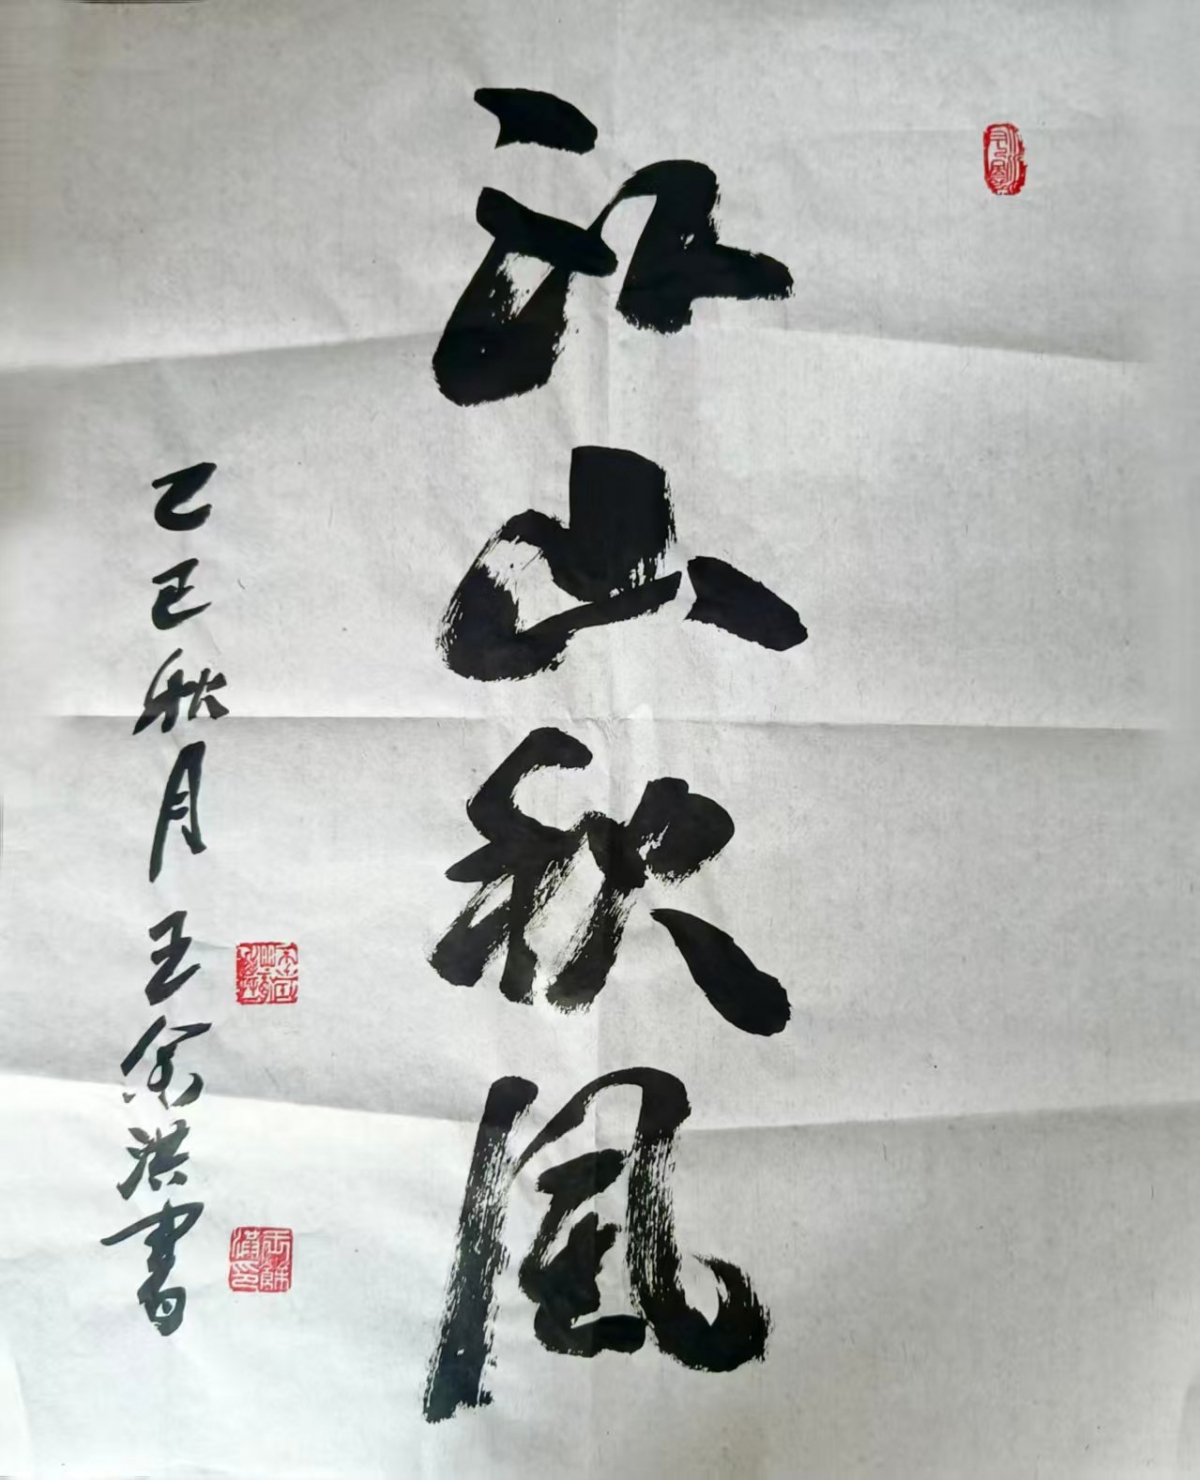 江山秋风
乙巳秋月王余洪書